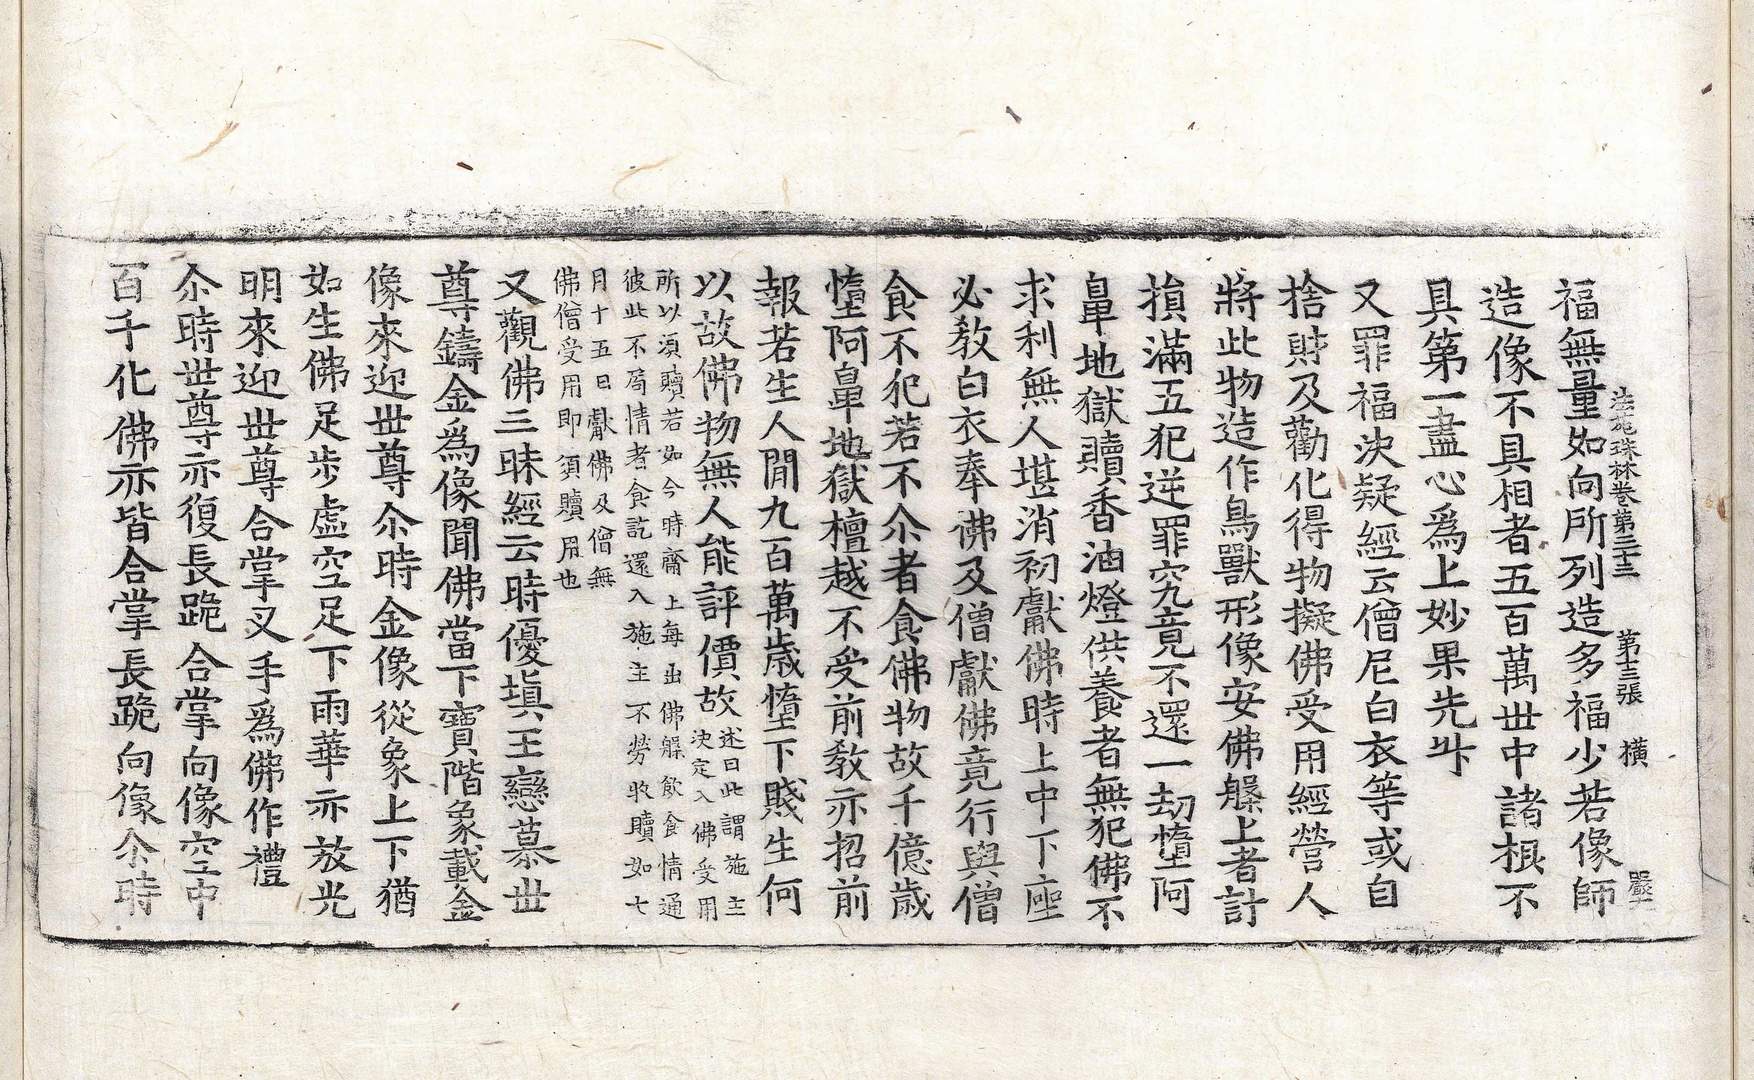 法苑珠林卷第三十三 第十三張 橫
福無量如向所列造多福少若像師
造像不具相者五百萬世中諸根不
具第一盡心爲上妙果先升
又罪福決疑經云僧尼白衣等或自
捨財及勸化得物擬佛受用經營人
將此物造作鳥獸形像安佛槃上者計
損滿五犯逆罪究竟不還一劫墮阿
鼻地獄贖香油燈供養者無犯佛不
求利無人堪消初獻佛時上中下座
必教白衣奉佛及僧獻佛竟行與僧
食不犯若不尒者食佛物故千億歲
墮阿鼻地獄檀越不受前教亦招前
報若生人閒九百萬歲墮下賤生何
以故佛物無人能評價故述曰此謂施主
決定入佛受用
所以須贖若如今時齋上每出佛槃飮食情通
彼此不局情者食訖還入施主不勞收贖如七
月十五日獻佛及僧無
佛僧受用即須贖用也
又觀佛三昧經云時優塡王戀慕世
尊鑄金爲像聞佛當下寶階象載金
像來迎世尊尒時金像從象上下猶
如生佛足步虛空足下雨華亦放光
明來迎世尊合掌叉手爲佛作禮
尒時世尊亦復長跪合掌向像空中
百千化佛亦皆合掌長跪向像尒時